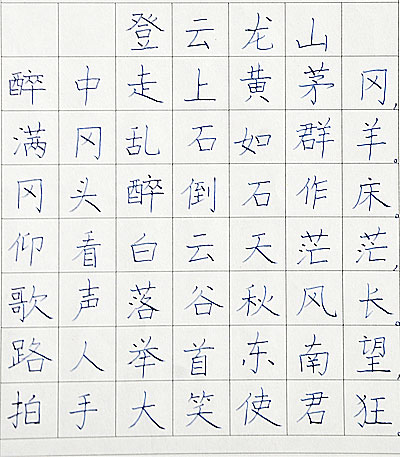 登云龙山
醉中走上黄茅冈,
满冈乱石如群羊。
冈头醉倒石作床。
仰看白云天茫茫,
歌声落谷秋风长。
路人举首东南望,
拍手大笑使君狂。